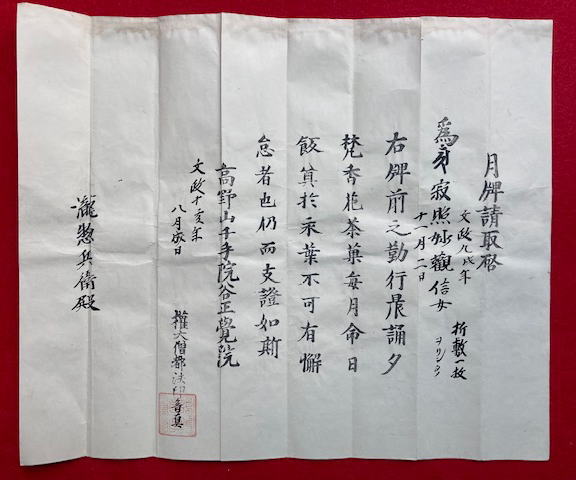 月牌請取
文政九戌年
為 寂照妙觀信女
十一月二日
折敷一枚
右牌前之勤行晨誦夕
梵香花茶菓每月命日
飯奠於永葉不可有懈
怠者也仍而支證如斯
高野山千手院谷正覺院
文政十亥年
八月 日
權大僧都法印
瀧惣兵衛殿